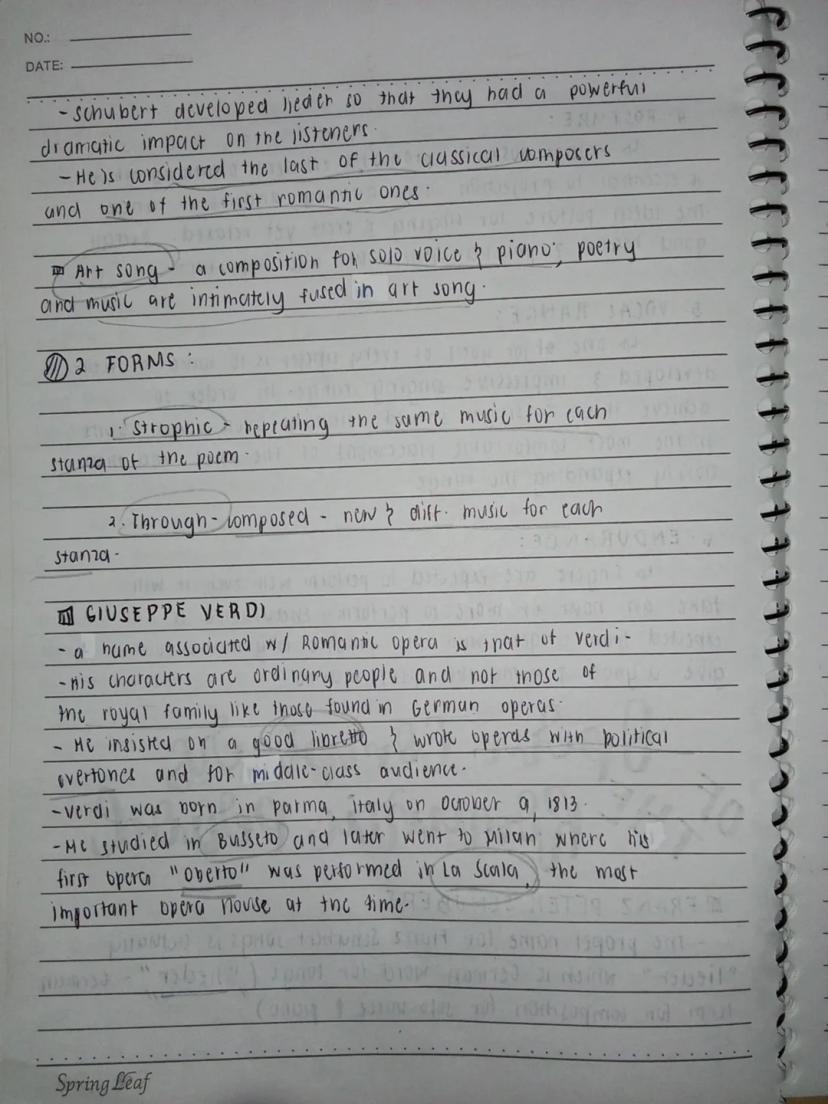 NO.:
DATE:
- Schubert developed lieder so that they had a powerful
dramatic impact on the listeners.
- He is considered the last of the classical composers
and one of the first romantic ones.
Art song - a composition for solo voice & piano; poetry
and music are intimately fused in art song.
2 FORMS:
1. Strophic - repeating the same music for each
stanza of the poem.
2. Through-composed - new & diff. music for each
stanza.
GIUSEPPE VERDI
- a name associated w/ Romantic opera is that of verdi -
- His characters are ordinary people and not those of
the royal family like those found in German operas.
- He insisted on a good libretto & wrote operas with political
overtones and for middle-class audience.
- Verdi was born in parma, italy on October 9, 1813.
- He studied in Busseto and later went to Milan where his
first opera "Oberto" was performed in La Scala, the most
important opera House at the time.
Spring Leaf